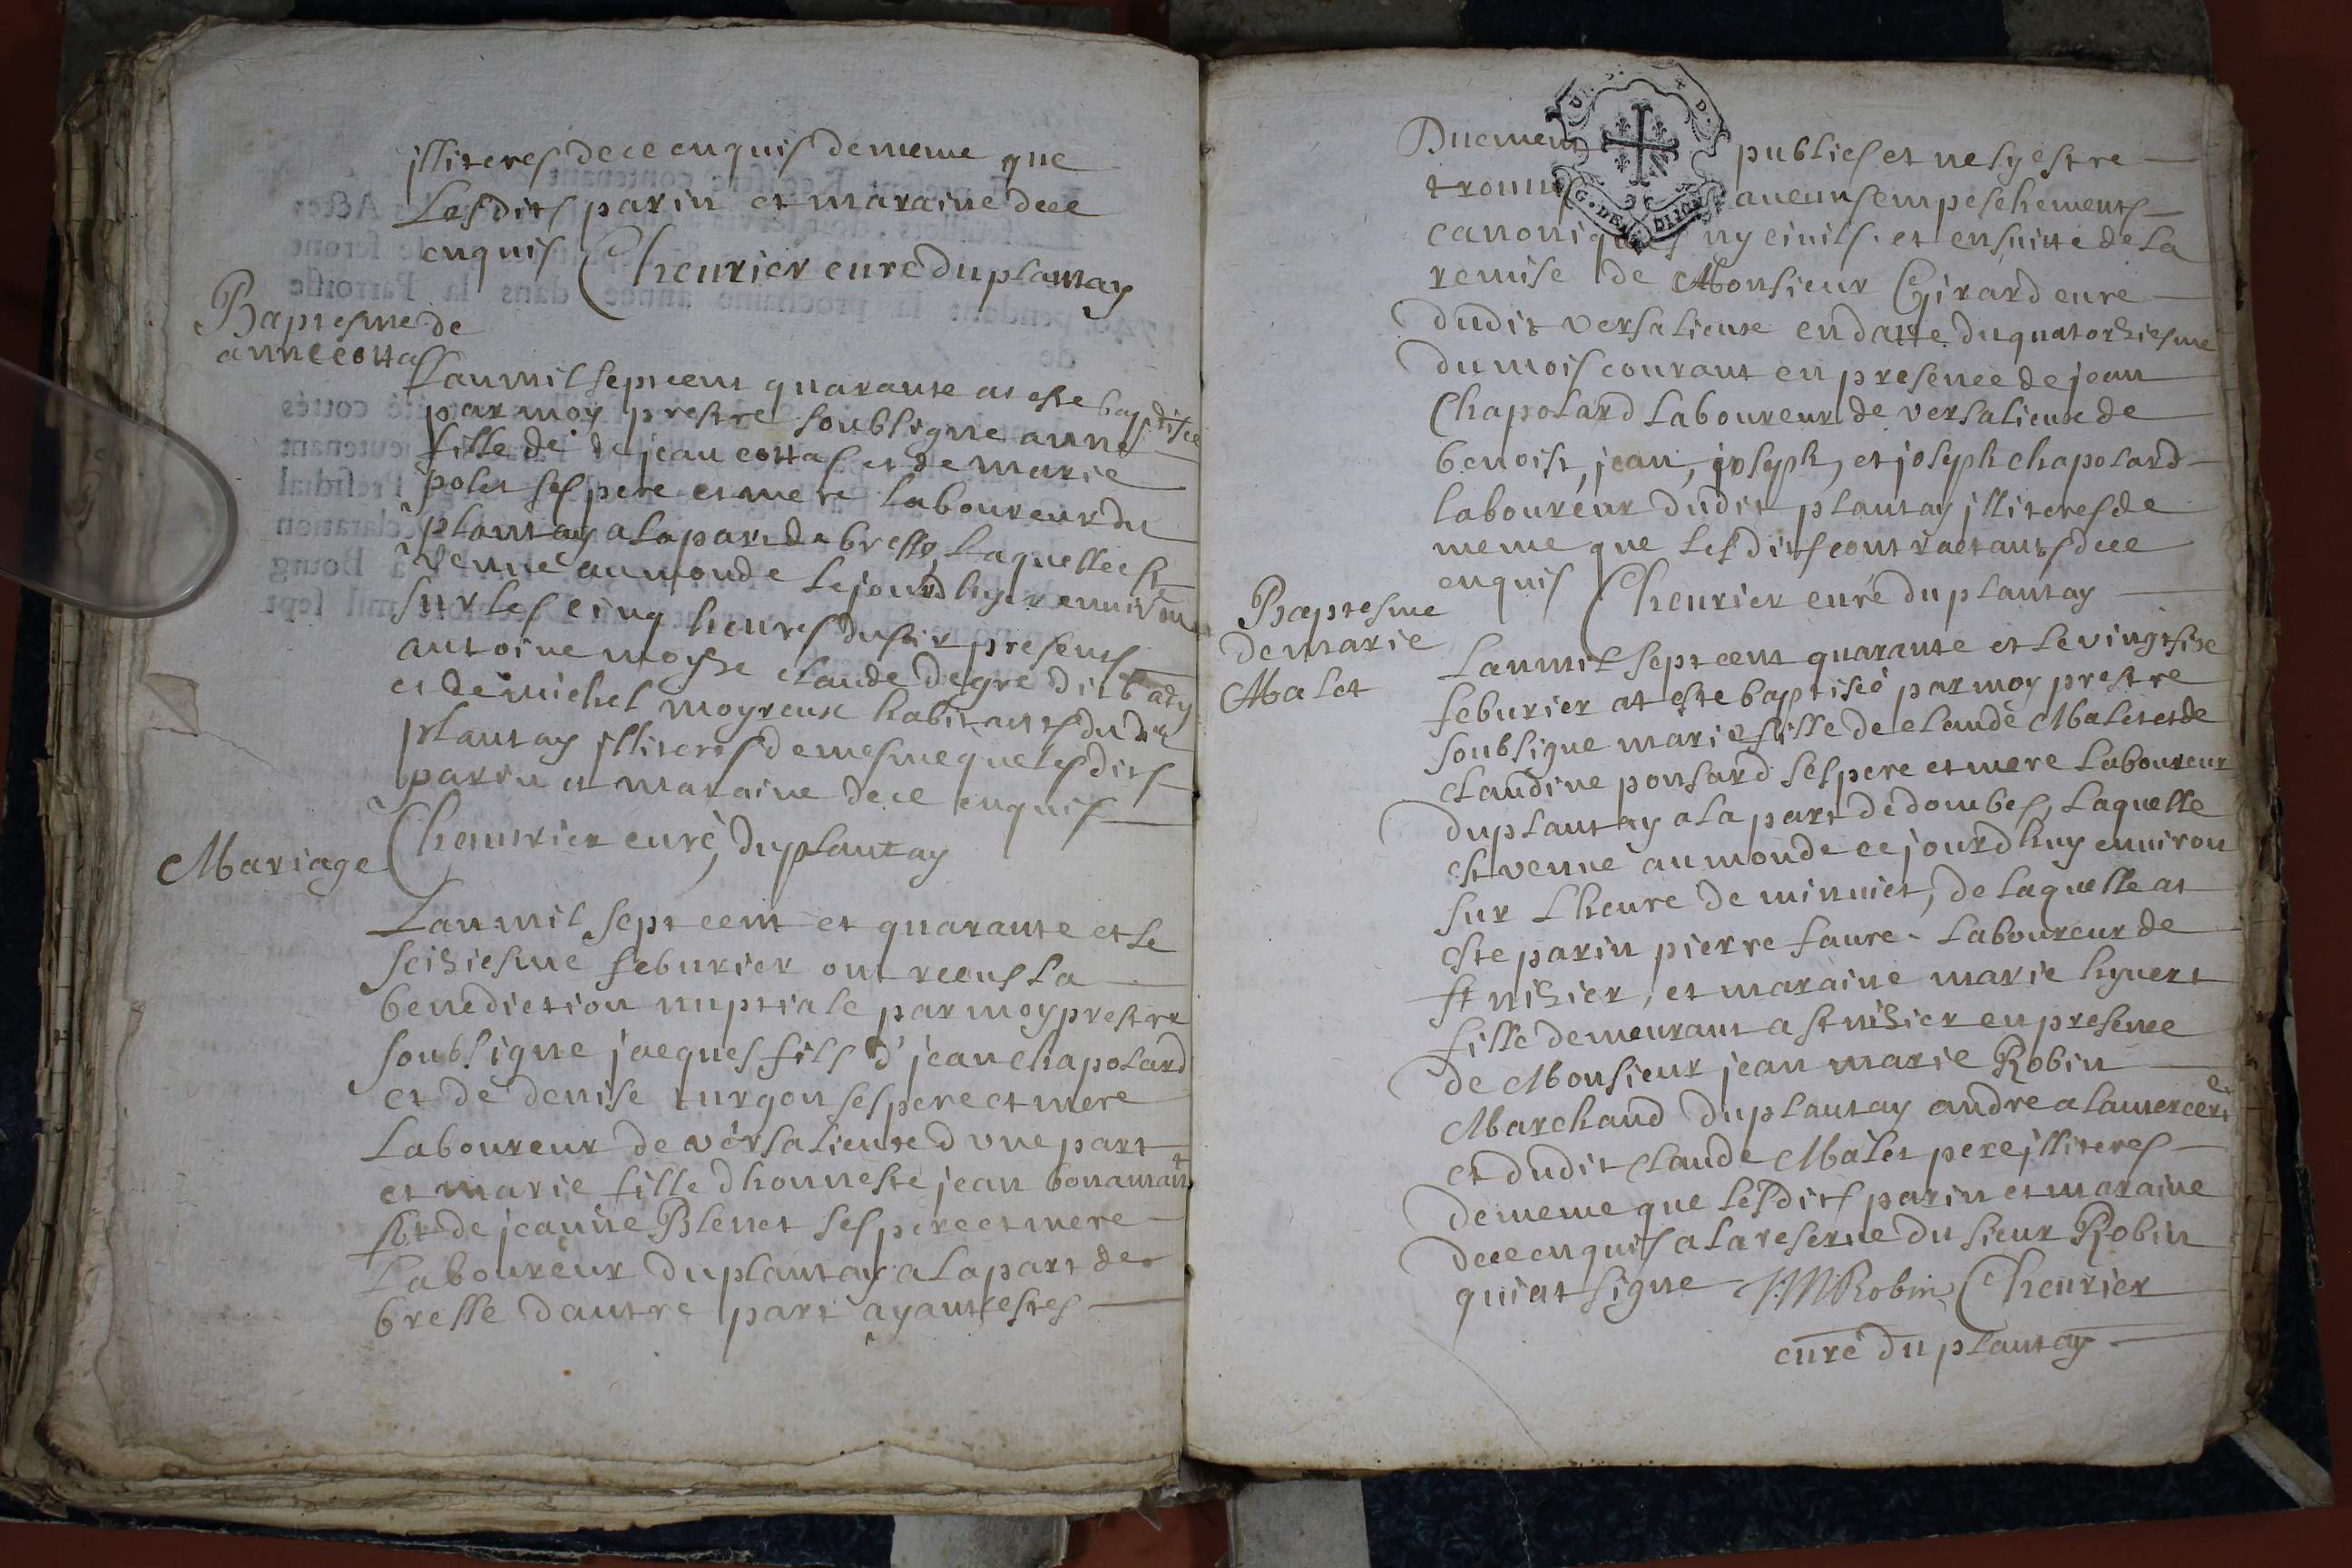 illiteres de ce enquis de meme que
Lesdits parin et maraine de ce
enquis Cheurier curé du plantay
Baptesme de
anne cottas
Lan mil sept cent quarante at este baptisée
par moy prestre soubsigne anne
fille de de jean cottas et de marie
polet ses pere et mere laboureur du
plantay a la part de bresse, laquelle est
venue au monde le jourdhyer enuiron
sur les cinq heures du soir presents
antoine moysse claude degre dit
et de michel moyreux habitants dudit
plantay illiteres de mesme que lesdits
parin et maraine de ce enquis
Cheurier curé, du plantay
Mariage
Lan mil sept cent et quarante et le
seiziesme feburier ont receus la
benediction nuptiale par moy prestre
soubsigne jacques fils d' jean chapolard
et de denise turgon ses pere et mere
Laboureur de versalieux d une part
et marie fille dhonneste jean
et de jeanne Blenet ses pere et mere
Laboureur du plantay a la part de
bresse dautre part ayant estes
Duement publies et ne sy estre
trouué aucuns empeschements
canoniques ny ciuils. et ensuitte de la
remise de Monsieur Girard cure
dudit versalieux en datte du quatorziesme
du mois courant en presence de jean
Chapolard laboureur de versalieux de
benoist, jean, joseph, et joseph chapolard
laboureur dudit plantay illiteres de
meme que lesdits contractants de ce
enquis Cheurier curé du plantay
Baptesme
de marie
Malet
Lan mil sept cent quarante et le vingt sixe
feburier at este baptiseé par moy prestre
soubsigne marie fille de claude Malet et de
claudine ponsard ses pere et mere laboureur
du plantay a la part de dombes, laquelle
est venue au monde ce jourdhuy enuiron
sur Lheure de minuict, de laquelle at
este parin pierre faure laboureur de
st nizier, et maraine marie
fille demeurant a st nizier en presence
de Monsieur jean marie Robin
Marchand du plantay andre
et dudit claude Malet pere illiteres
de meme que lesdits parin et maraine
de ce enquis a la reserue du sieur Robin
qui at signe J M Robin Cheurier
curé du plantay
G. DE DIJON